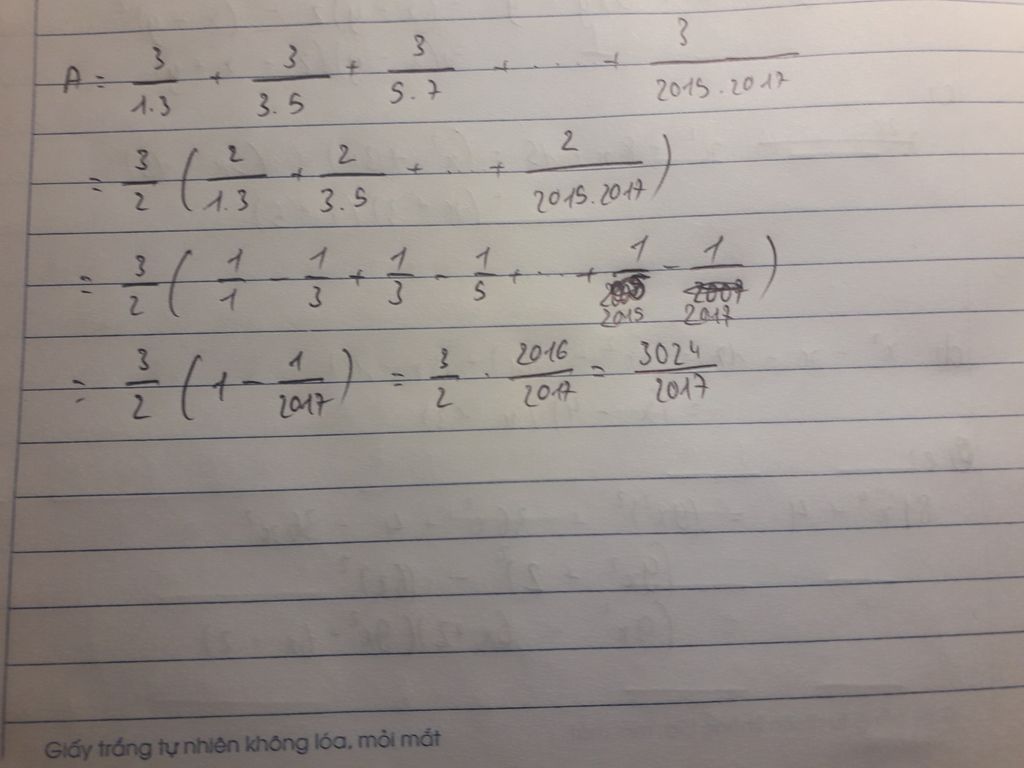 A = 3/1.3 + 3/3.5 + 3/5.7 + ... + 3/2015.2017
= 3/2 ( 2/1.3 + 2/3.5 + ... + 2/2015.2017 )
= 3/2 ( 1/1 - 1/3 + 1/3 - 1/5 + ... + 1/2015 - 1/2017 )
= 3/2 ( 1 - 1/2017 ) = 3/2 . 2016/2017 = 3024/2017
Giấy trắng tự nhiên không lóa, mỏi mắt